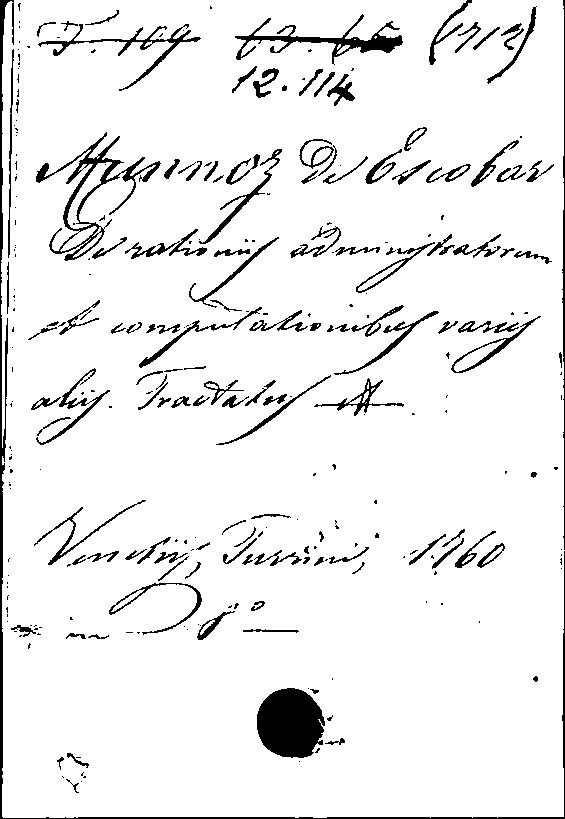 T. 109 63. 65 (1712)
12.114
Munnoz De Escobar
De rationiis administratorum
et computationibus variis
aliis. Tractatus
Venetiis, Turrini, 1760
in 8°